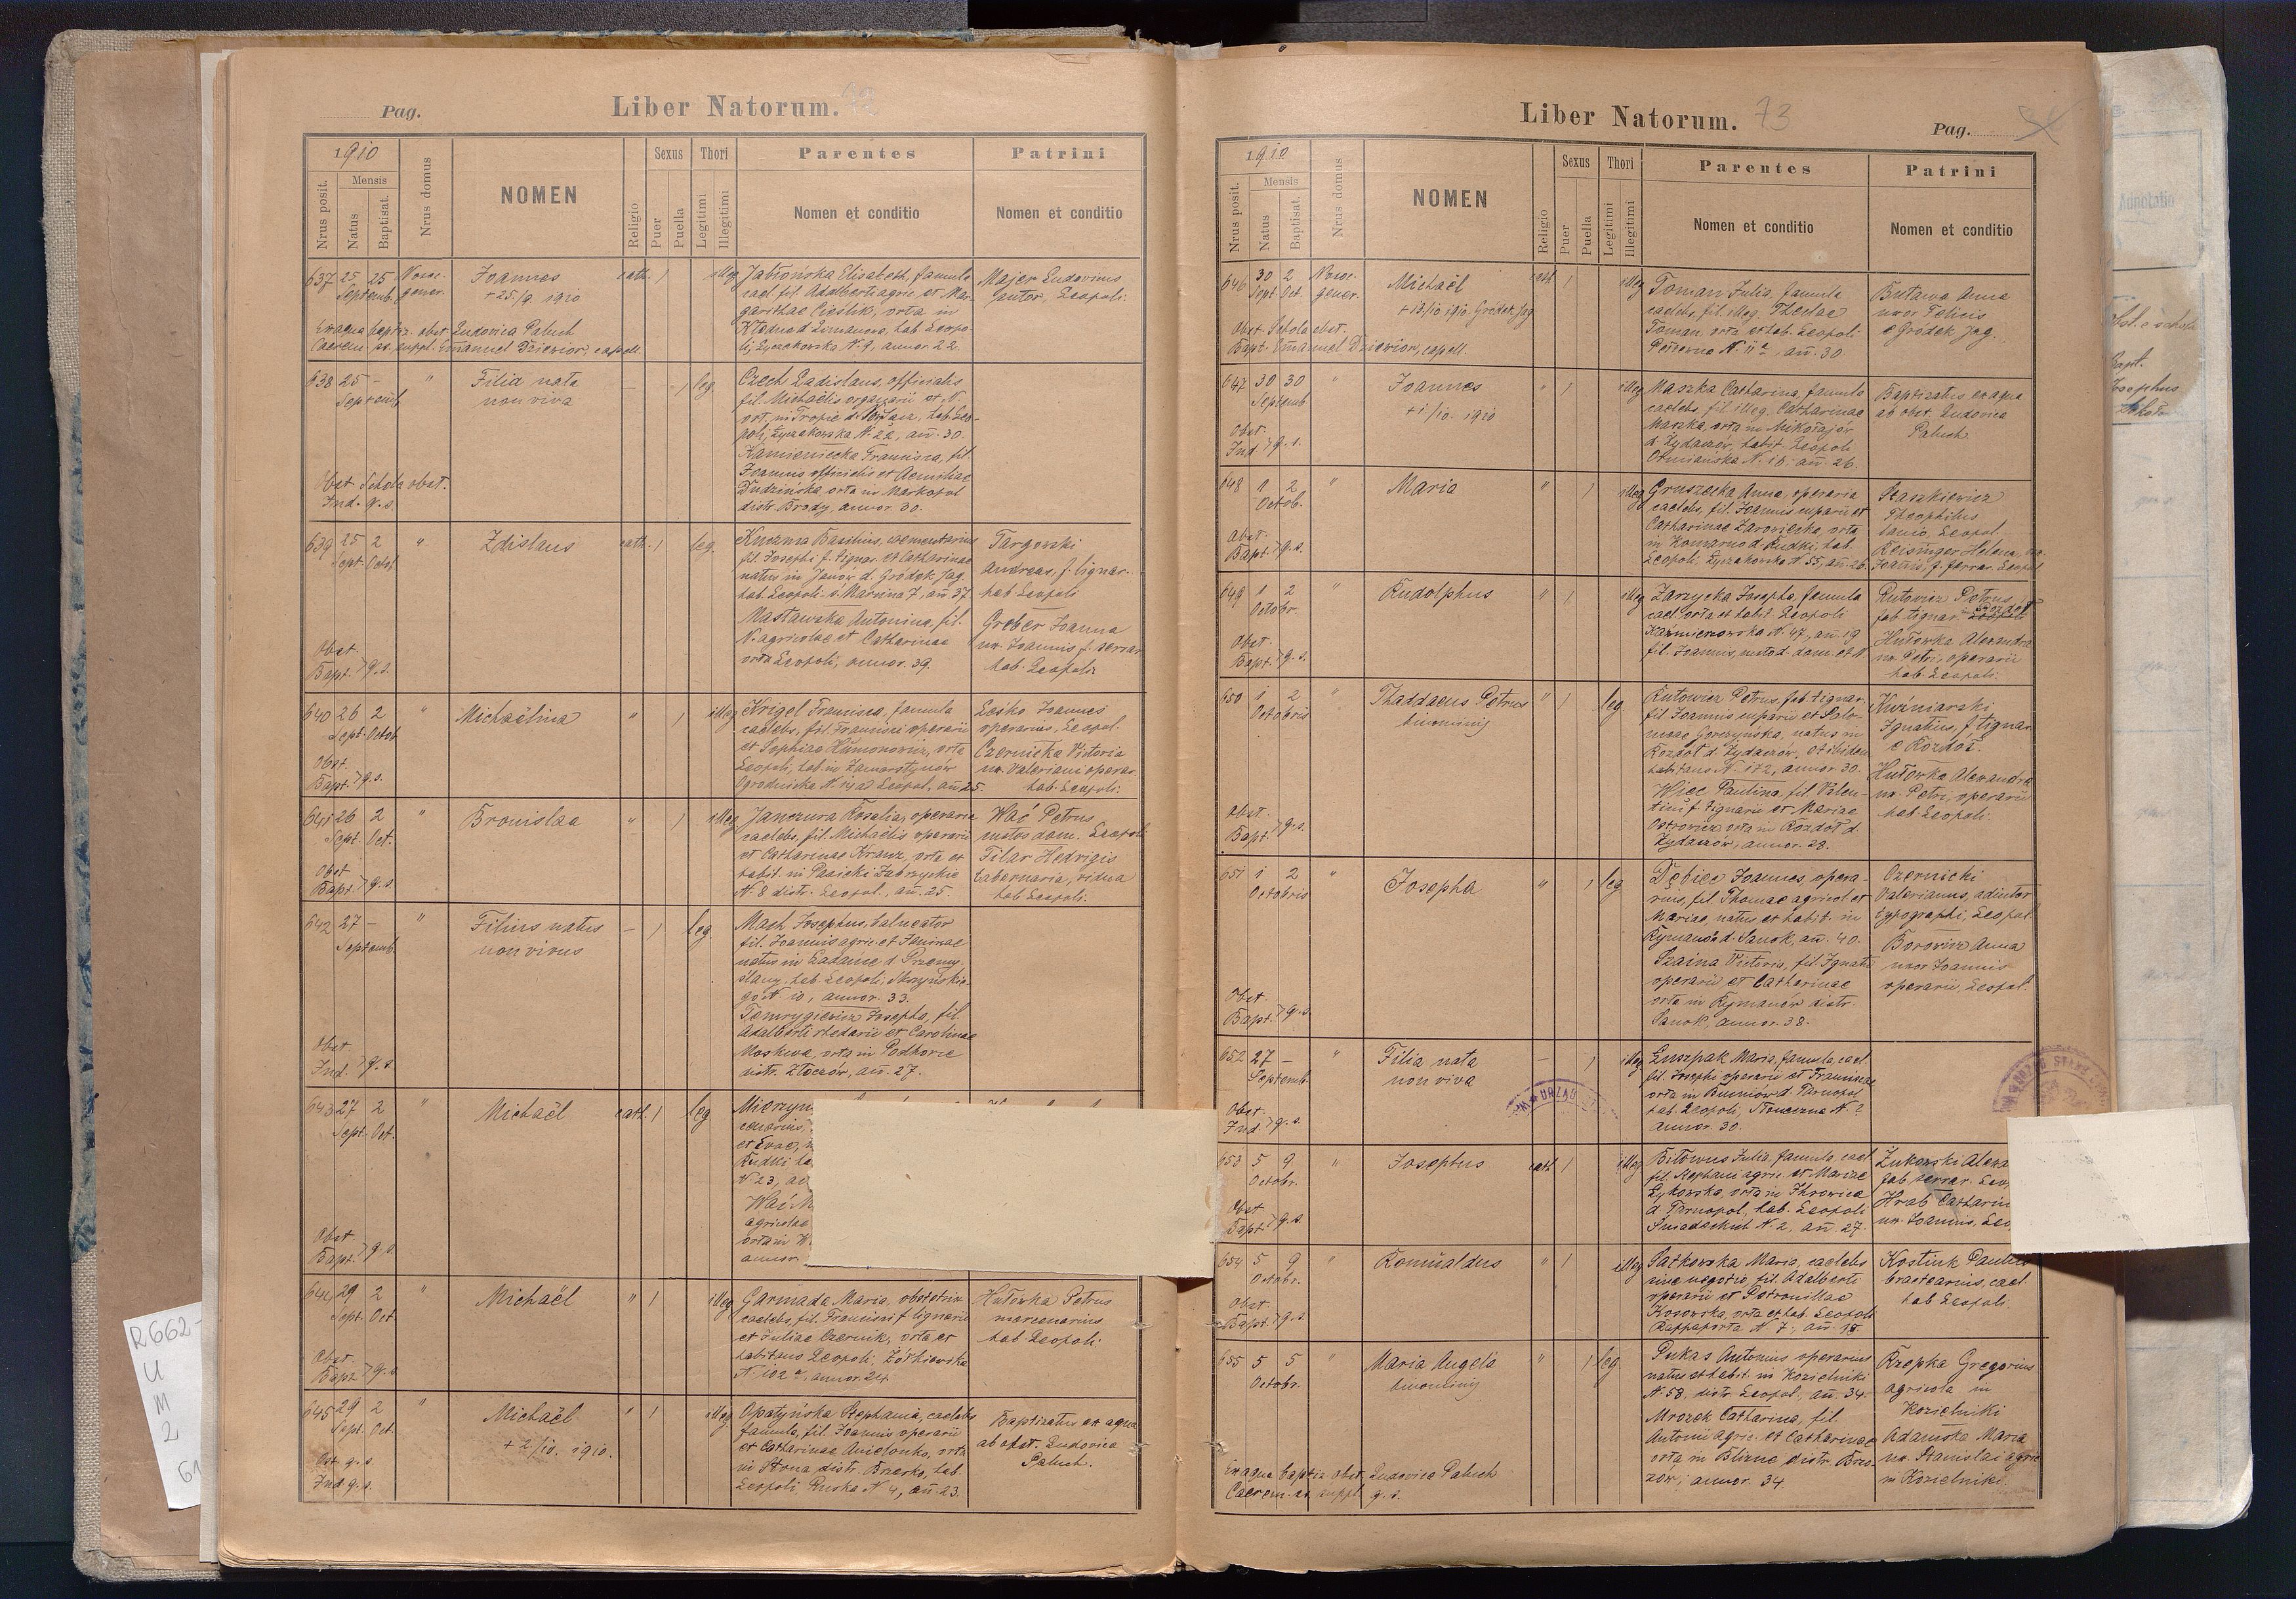 Pag.
Liber Natorum.
1910
Nrus posit.
Mensis
Natus
Baptisat.
Nrus domus
NOMEN
Religio
Sexus
Puer
Puella
Thori
Legitimi
Illegitimi
Parentes
Nomen et conditio
Patrini
Nomen et conditio
637 25 25
Septemb.
Joannes
+ 25/9 1910
cath. 1 illeg.
Jabłońska Elisabeth, famula
cael. fil. Adalberti agric. et Mar-
garithae Cieślik, orta in
Łyczakowska N. 9, annor. 22.
Majer Ludovicus
Leopoli.
Ex aqua baptiz. obst. Ludovica Paluch
Caerem. as. suppl. Emanuel Dziewior, capell.
638 25 —
Septemb.
"
Filia nata
non viva
— 1 leg.
Czech Ladislaus, officialis
fil. Michaëlis organarii et N.
poli, Łyczakowska N. 22, an. 30.
Kamieniecka Francisca, fil.
Joannis officialis et Aemiliae
Dudzińska, orta in Markopol
distr. Brody, annor. 30.
Obst. Schola obst.
Ind. q. s.
639 25 2
Sept. Octob.
"
Zdislaus
cath. 1 leg.
Kuczma Basilius, cementarius
fil. Josephi f. lignar. et Catharinae
natus in Janów d. Gródek Jag.
hab. Leopoli. s. Marcina 7, an. 37
Mastawska Antonina, fil.
N. agricolae et Catharinae
orta Leopoli, annor. 39.
Targowski
Andreas, f. lignar.
hab. Leopoli
Greber Joanna
ux. Joannis f. serrar.
hab. Leopoli
Obst.
Bapt. q. s.
640 26 2
Sept. Octob.
"
Michaëlina
" 1 illeg.
Krigel Francisca, famula
caelebs, fil. Francisci operarii
et Sophiae Klimonowicz, orta
Leopoli, hab. in Zamarstynów
Ogrodnicka N. 19 ad Leopol., an. 25.
Lesko Joannes
operarius, Leopol.
Czernicka Victoria
ux. Valeriani operar.
hab. Leopoli.
Obst.
Bapt. q. s.
641 26 2
Sept. Oct.
"
Bronislaa
" 1 illeg.
Janczura Rosalia, operaria
caelebs, fil. Michaëlis operarii
et Catharinae Kranz, orta et
habit. in Pasieki Zubrzyckie
N. 8 distr. Leopol., an. 25.
Wać Petrus
custos dom. Leopoli
Filar Hedvigis
tabernaria, vidua
hab. Leopoli.
Obst.
Bapt. q. s.
642 27 —
Septemb.
"
Filius natus
non vivus
— 1 leg.
Mach Josephus, balneator
fil. Joannis agric. et Janinae
natus in Ladance d. Przemy-
slany, hab. Leopoli, Skrzyńskie-
go N. 10, annor. 33.
Temrygiewicz Josepha, fil.
Adalberti rhedarii et Carolinae
Moskwa, orta in Podhorce
distr. Złoczów, an. 27.
Obst.
Ind. q. s.
643 27 2
Sept. Oct.
"
Michaël
cath. 1 leg.
Mierzyn
et Evae,
Rudki
N. 23,
Wać
agricolae
orta in
annor.
Obst.
Bapt. q. s.
644 29 2
Sept. Oct.
"
Michaël
" 1 illeg.
Garmada Maria, obstetrix
caelebs, fil. Francisci f. lignarii
et Juliae Czernik, orta et
habitans Leopoli, Żółkiewska
N. 102 a, annor. 24.
Hutowka Petrus
mercenarius
hab. Leopoli.
Obst.
Bapt. q. s.
645 29 2
Sept. Oct.
"
Michaël
+ 2/10. 1910.
" 1 illeg.
Opatyńska Stephania, caelebs
famula, fil. Joannis operarii
et Catharinae Anielonka, orta
in Słona distr. Brzesko, hab.
Leopoli, Ruska N. 4, an. 23.
Baptizatus ex aqua
ab obst. Ludovica
Paluch.
Obst. q. s.
Ind. q. s.
Liber Natorum. 73
Pag.
1910
Nrus posit.
Mensis
Natus
Baptisat.
Nrus domus
NOMEN
Religio
Sexus
Puer
Puella
Thori
Legitimi
Illegitimi
Parentes
Nomen et conditio
Patrini
Nomen et conditio
646 30 2
Sept. Oct.
Michaël
+ 13/10 1910. Gródek Jag.
cath. 1 illeg.
Toman Julia, famula
caelebs, fil. illeg. Theclae
Toman, orta et hab. Leopoli
N. 11 a, an. 30.
Butawa Anna
uxor Felicis
e Gródek Jag.
Obst. Schola obst.
Bapt. Emanuel Dziewior, capell.
647 30 30
Septemb.
"
Joannes
+ 1/10. 1910
" 1 illeg.
Maszka Catharina, famula
caelebs, fil. illeg. Catharinae
Maszka, orta in Mikołajów
d. Żydaczów, habit. Leopoli
Ormiańska N. 18. an. 26.
Baptizatus ex aqua
ab obst. Ludovica
Paluch.
Obst.
Ind. q. s.
648 1 2
Octob.
"
Maria
" 1 illeg.
Gruszecka Anna, operaria
caelebs, fil. Joannis cuparii et
Catharinae Zarowiecka, orta
in Komarno d. Rudki, hab.
Leopoli, Łyczakowska N. 55, an. 26.
Staszkiewicz
Theophilus
lanio, Leopol.
Reisinger Helena, ux.
Joannis, f. ferrar. Leopol
Obst.
Bapt. q. s.
649 1 2
Octobr.
"
Rudolphus
" 1 illeg.
Zarzycka Josepha, famula
cael. orta et habit. Leopoli
Kazimierzowska N. 47, an. 19
fil. Joannis, custod. dom. et N.
Rutowicz Petrus
fab. lignar.
Hutowka Alexandra
ux. Petri, operarii
hab. Leopoli.
Obst.
Bapt. q. s.
650 1 2
Octobris
"
Thaddaeus Petrus
binominis
" 1 leg.
Rutowicz Petrus, fab. lignar.
fil. Joannis cuparii et Salo-
meae Gorczyńska, natus in
Rozdoł d. Żydaczów, et ibidem
habitans N. 172, annor. 30.
Wiec Paulina, fil. Valen-
tini f. lignarii et Mariae
Ostrowicz, orta in Rozdoł d.
Żydaczów, annor. 28.
Kuźniarski
Ignatius, f. lignar.
e Rozdoł.
Hutowka Alexandra
ux. Petri, operarii
hab. Leopoli.
Obst.
Bapt. q. s.
651 1 2
Octobris
"
Josepha
" 1 leg.
Dębiec Joannes, opera-
rius, fil. Thomae agricol. et
Mariae natus et habit. in
Rymanów d. Sanok, an. 40.
Szaina Victoria, fil. Ignatii
operarii et Catharinae
orta in Rymanów distr.
Sanok, annor. 38.
Czernicki
Valerianus, adiutor
typographi, Leopol.
Borowicz Anna
uxor Joannis
operarii, Leopol.
Obst.
Bapt. q. s.
652 27 —
Septemb.
"
Filia nata
non viva
— 1 illeg.
Łuszpak Maria, famula, cael.
fil. Josephi operarii et Franciscae
orta in Bucniów d. Tarnopol
hab. Leopoli, Słoneczna N. ?
annor. 30.
Obst.
Ind. q. s.
653 5 9
Octobr.
"
Josephus
cath. 1 illeg.
Bitowus Julia, famula, cael.
fil. Stephani agric. et Mariae
Łykowska, orta in Ihrowica
d. Tarnopol, hab. Leopoli
Śniadeckich N. 2, an. 27
Żukowski Alexa
fab. serrar. Leo
Hrab Catharin
ux. Joannis, Leo
Obst.
Bapt. q. s.
654 5 9
Octobr.
"
Romualdus
" 1 illeg.
Satkowska Maria, caelebs
sine negotio, fil. Adalberti
operarii et Petronillae
Kosowska, orta et hab. Leopoli
Rappaporta N. 7, an. 18.
Kostiuk
bractearius, cael.
hab. Leopoli.
Obst.
Bapt. q. s.
655 5 5
Octobr.
"
Maria Angela
binominis
" 1 leg.
Pukas Antonius operarius
natus et habit. in Kozielniki
N. 58, distr. Leopol. an. 34.
Mrozek Catharina, fil.
Antonii agric. et Catharinae
orta in Blizne distr. Brzo-
zów, annor. 34.
Rzepka Gregorius
agricola in
Kozielniki
Adamska Maria
ux. Stanislai agric.
in Kozielniki.
Ex aqua baptiz. obst. Ludovica Paluch
Caerem. as. suppl. q. s.
Adnotatio
Bapt.
Josephus
R662-
U
M
2